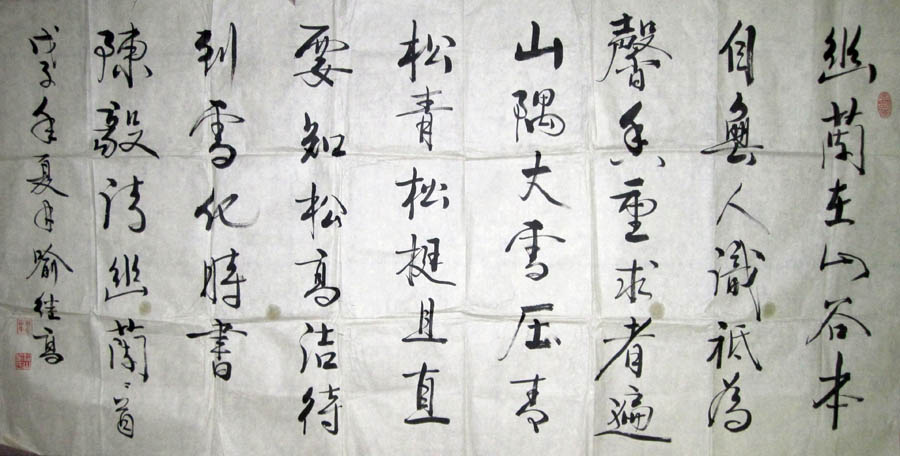 幽蘭在山谷本
自無人識祗為
馨香重求者遍
山隅大雪压青
松青松挺且直
要知松高洁待
到雪化時書
陳毅詩幽蘭二首
戊子年夏月喻继高